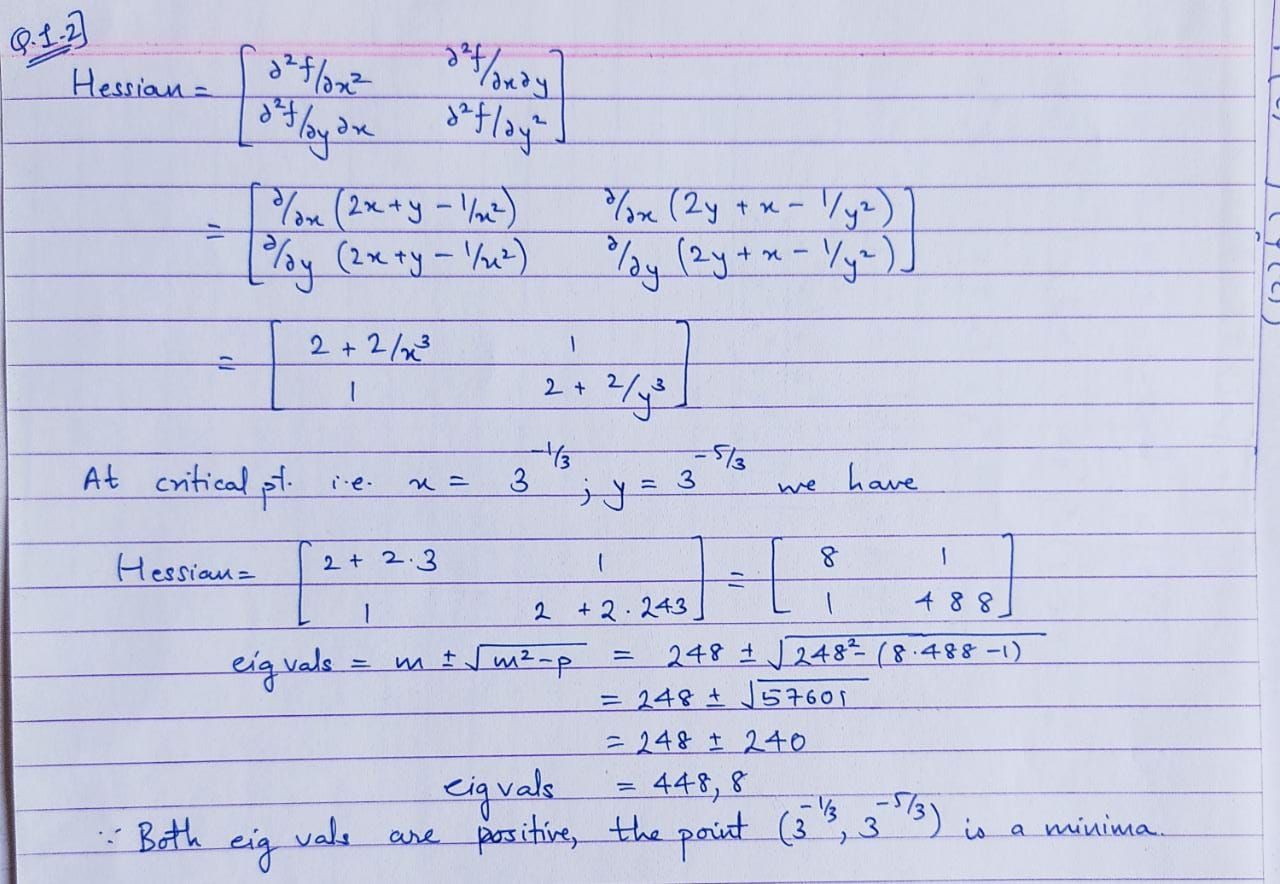 Q.1.2]
Hessian = [ ∂²f/∂x² ∂²f/∂x∂y
∂²f/∂y∂x ∂²f/∂y² ]
= [ ∂/∂x (2x+y – 1/x²) ∂/∂x (2y + x – 1/y²)
∂/∂y (2x+y – 1/x²) ∂/∂y (2y + x – 1/y²) ]
= [ 2 + 2/x³ 1
1 2 + 2/y³ ]
At critical pt. i.e. x = 3^(-1/3) ; y = 3^(-5/3) we have
Hessian = [ 2 + 2.3 1 ] = [ 8 1 ]
[ 1 2 + 2.243 ] [ 1 488 ]
eig vals = m ± √(m²-p) = 248 ± √(248² – (8.488 – 1)
= 248 ± √57601
= 248 ± 240
eig vals = 448, 8
∵ Both eig vals are positive, the point (3^(-1/3), 3^(-5/3)) is a minima.